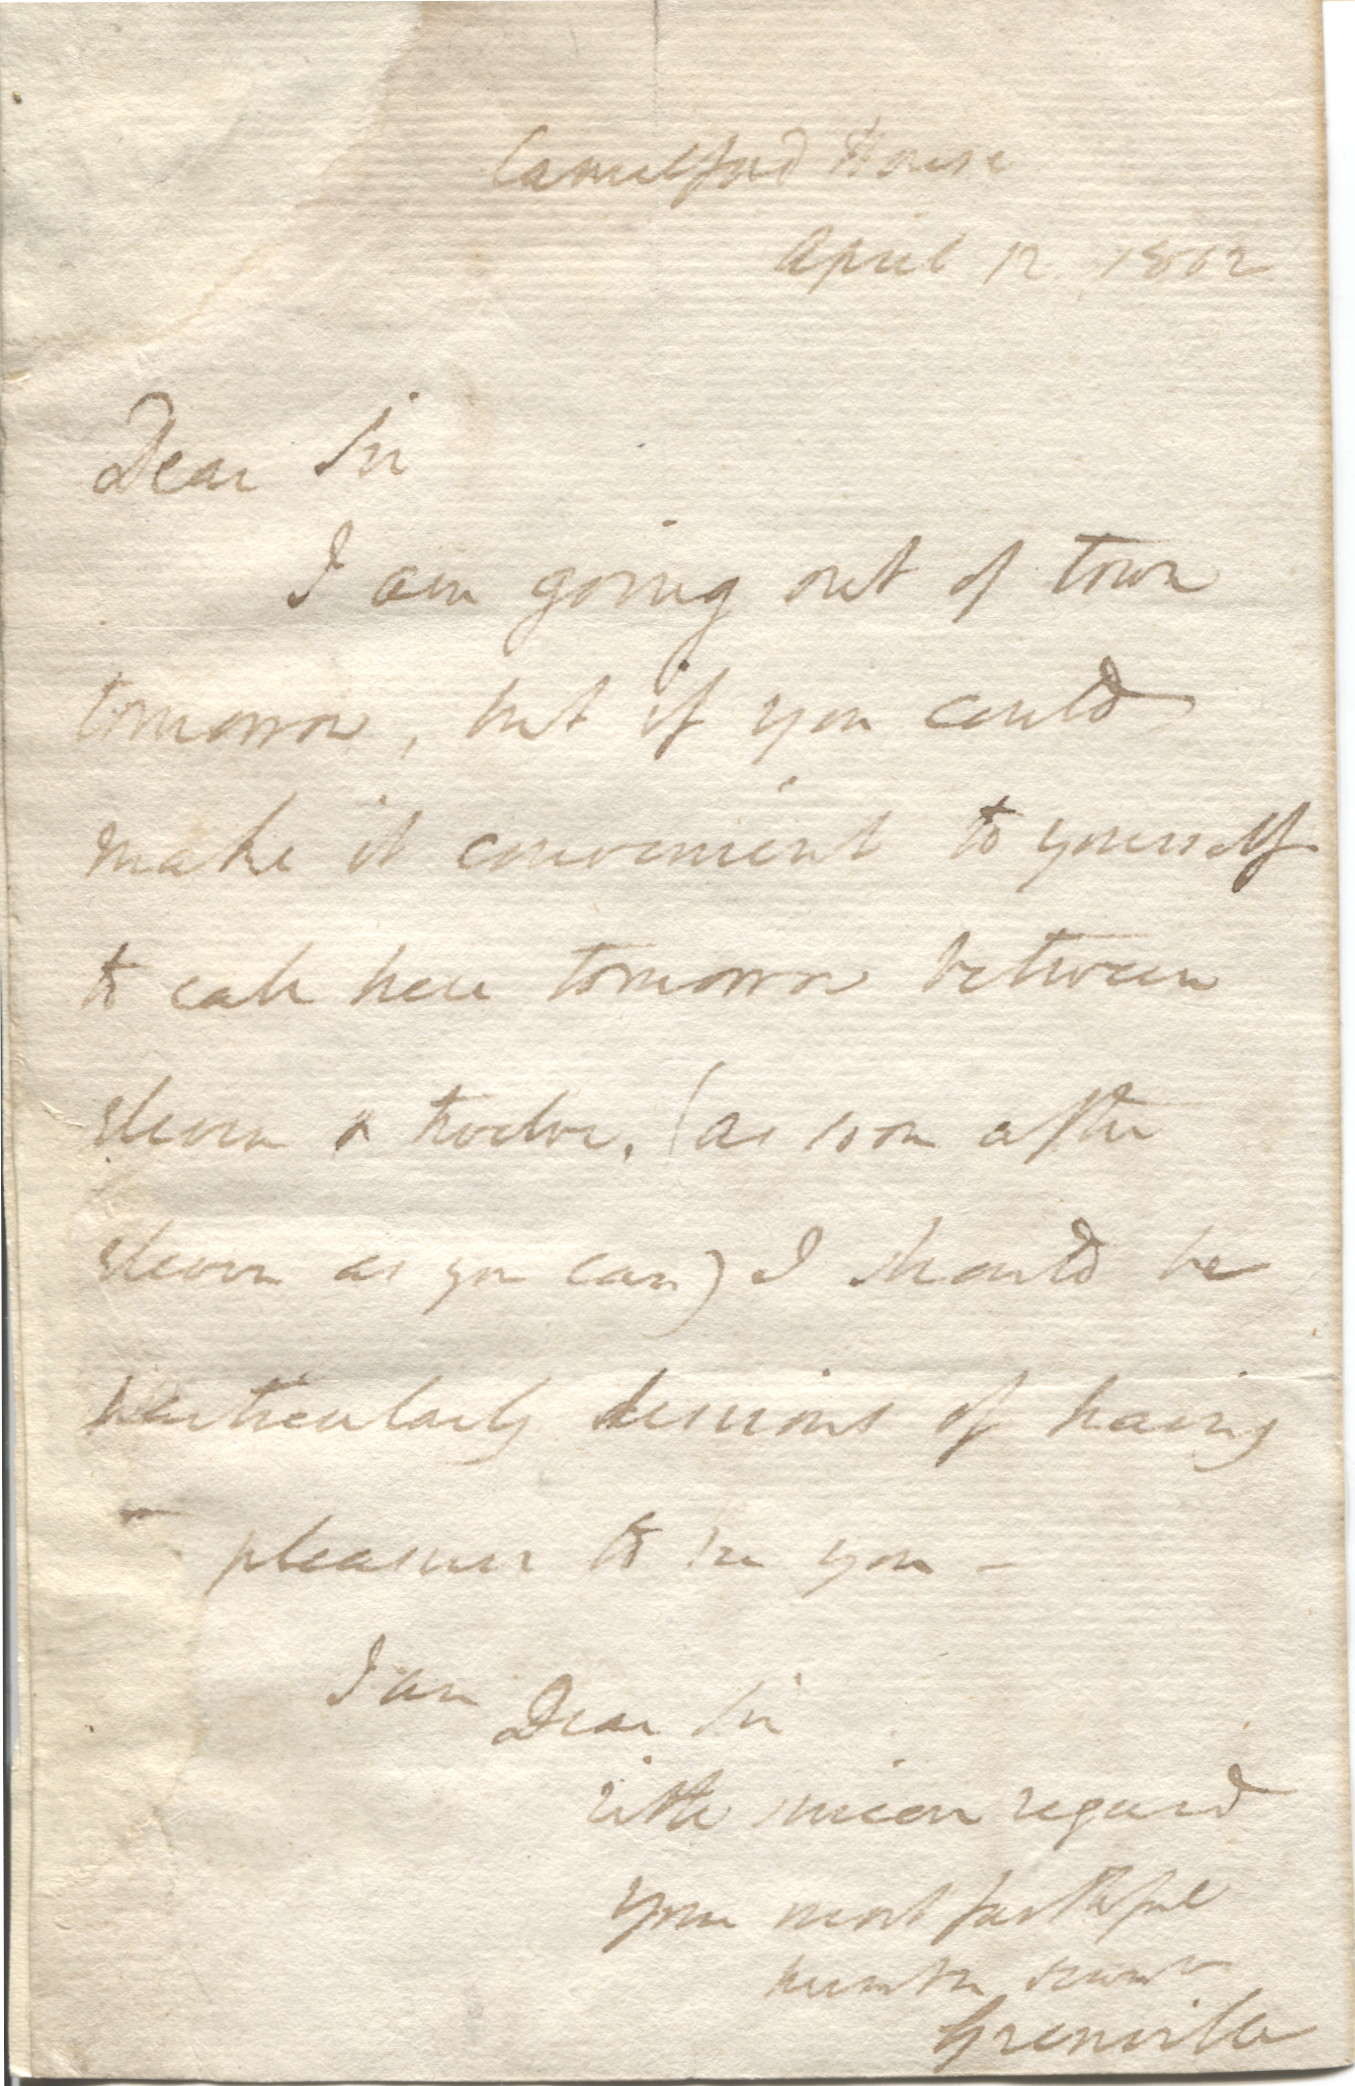 Camelford House
April 12 1802
Dear Sir
I am going out of town
tomorrow, but if you could
make it convenient to yourself
to call here tomorrow between
eleven & twelve, (as soon after
eleven as you can) I should be
particularly desirous of having
pleasure to see you -
I am Dear Sir
with sincere regard
Your most faithful
humble servant
Grenville